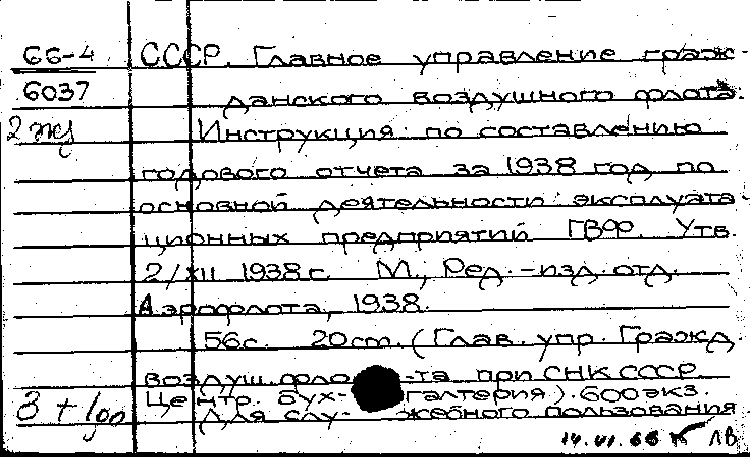 66-4 СССР. Главное управление граж-
6037 данского воздушного флота.
Инструкция по составлению
годового отчета за 1938 год по
основной деятельности эксплуата-
ционных предприятий ГВФ. Утв.
2/XII 1938 г. М., Ред.-изд. отд.
Аэрофлота, 1938.
56 с. 20 cm. (Глав. упр. Гражд.
воздуш. фло-та при СНК СССР.
Центр. бух-галтерия). 600 экз.
Для слу-жебного пользования
14.VI.66 ЛВ